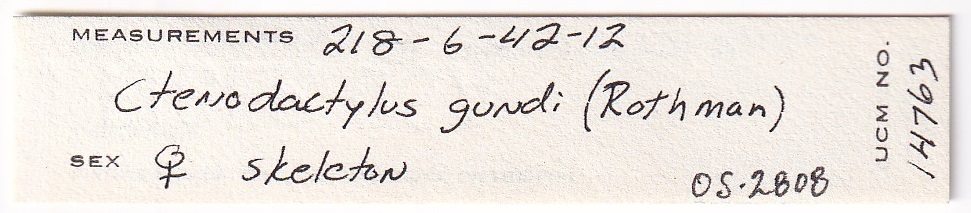 MEASUREMENTS 218-6-42-12
Ctenodactylus gundi (Rothman)
SEX ♀ skeleton
OS-2808
UCM NO. 14763